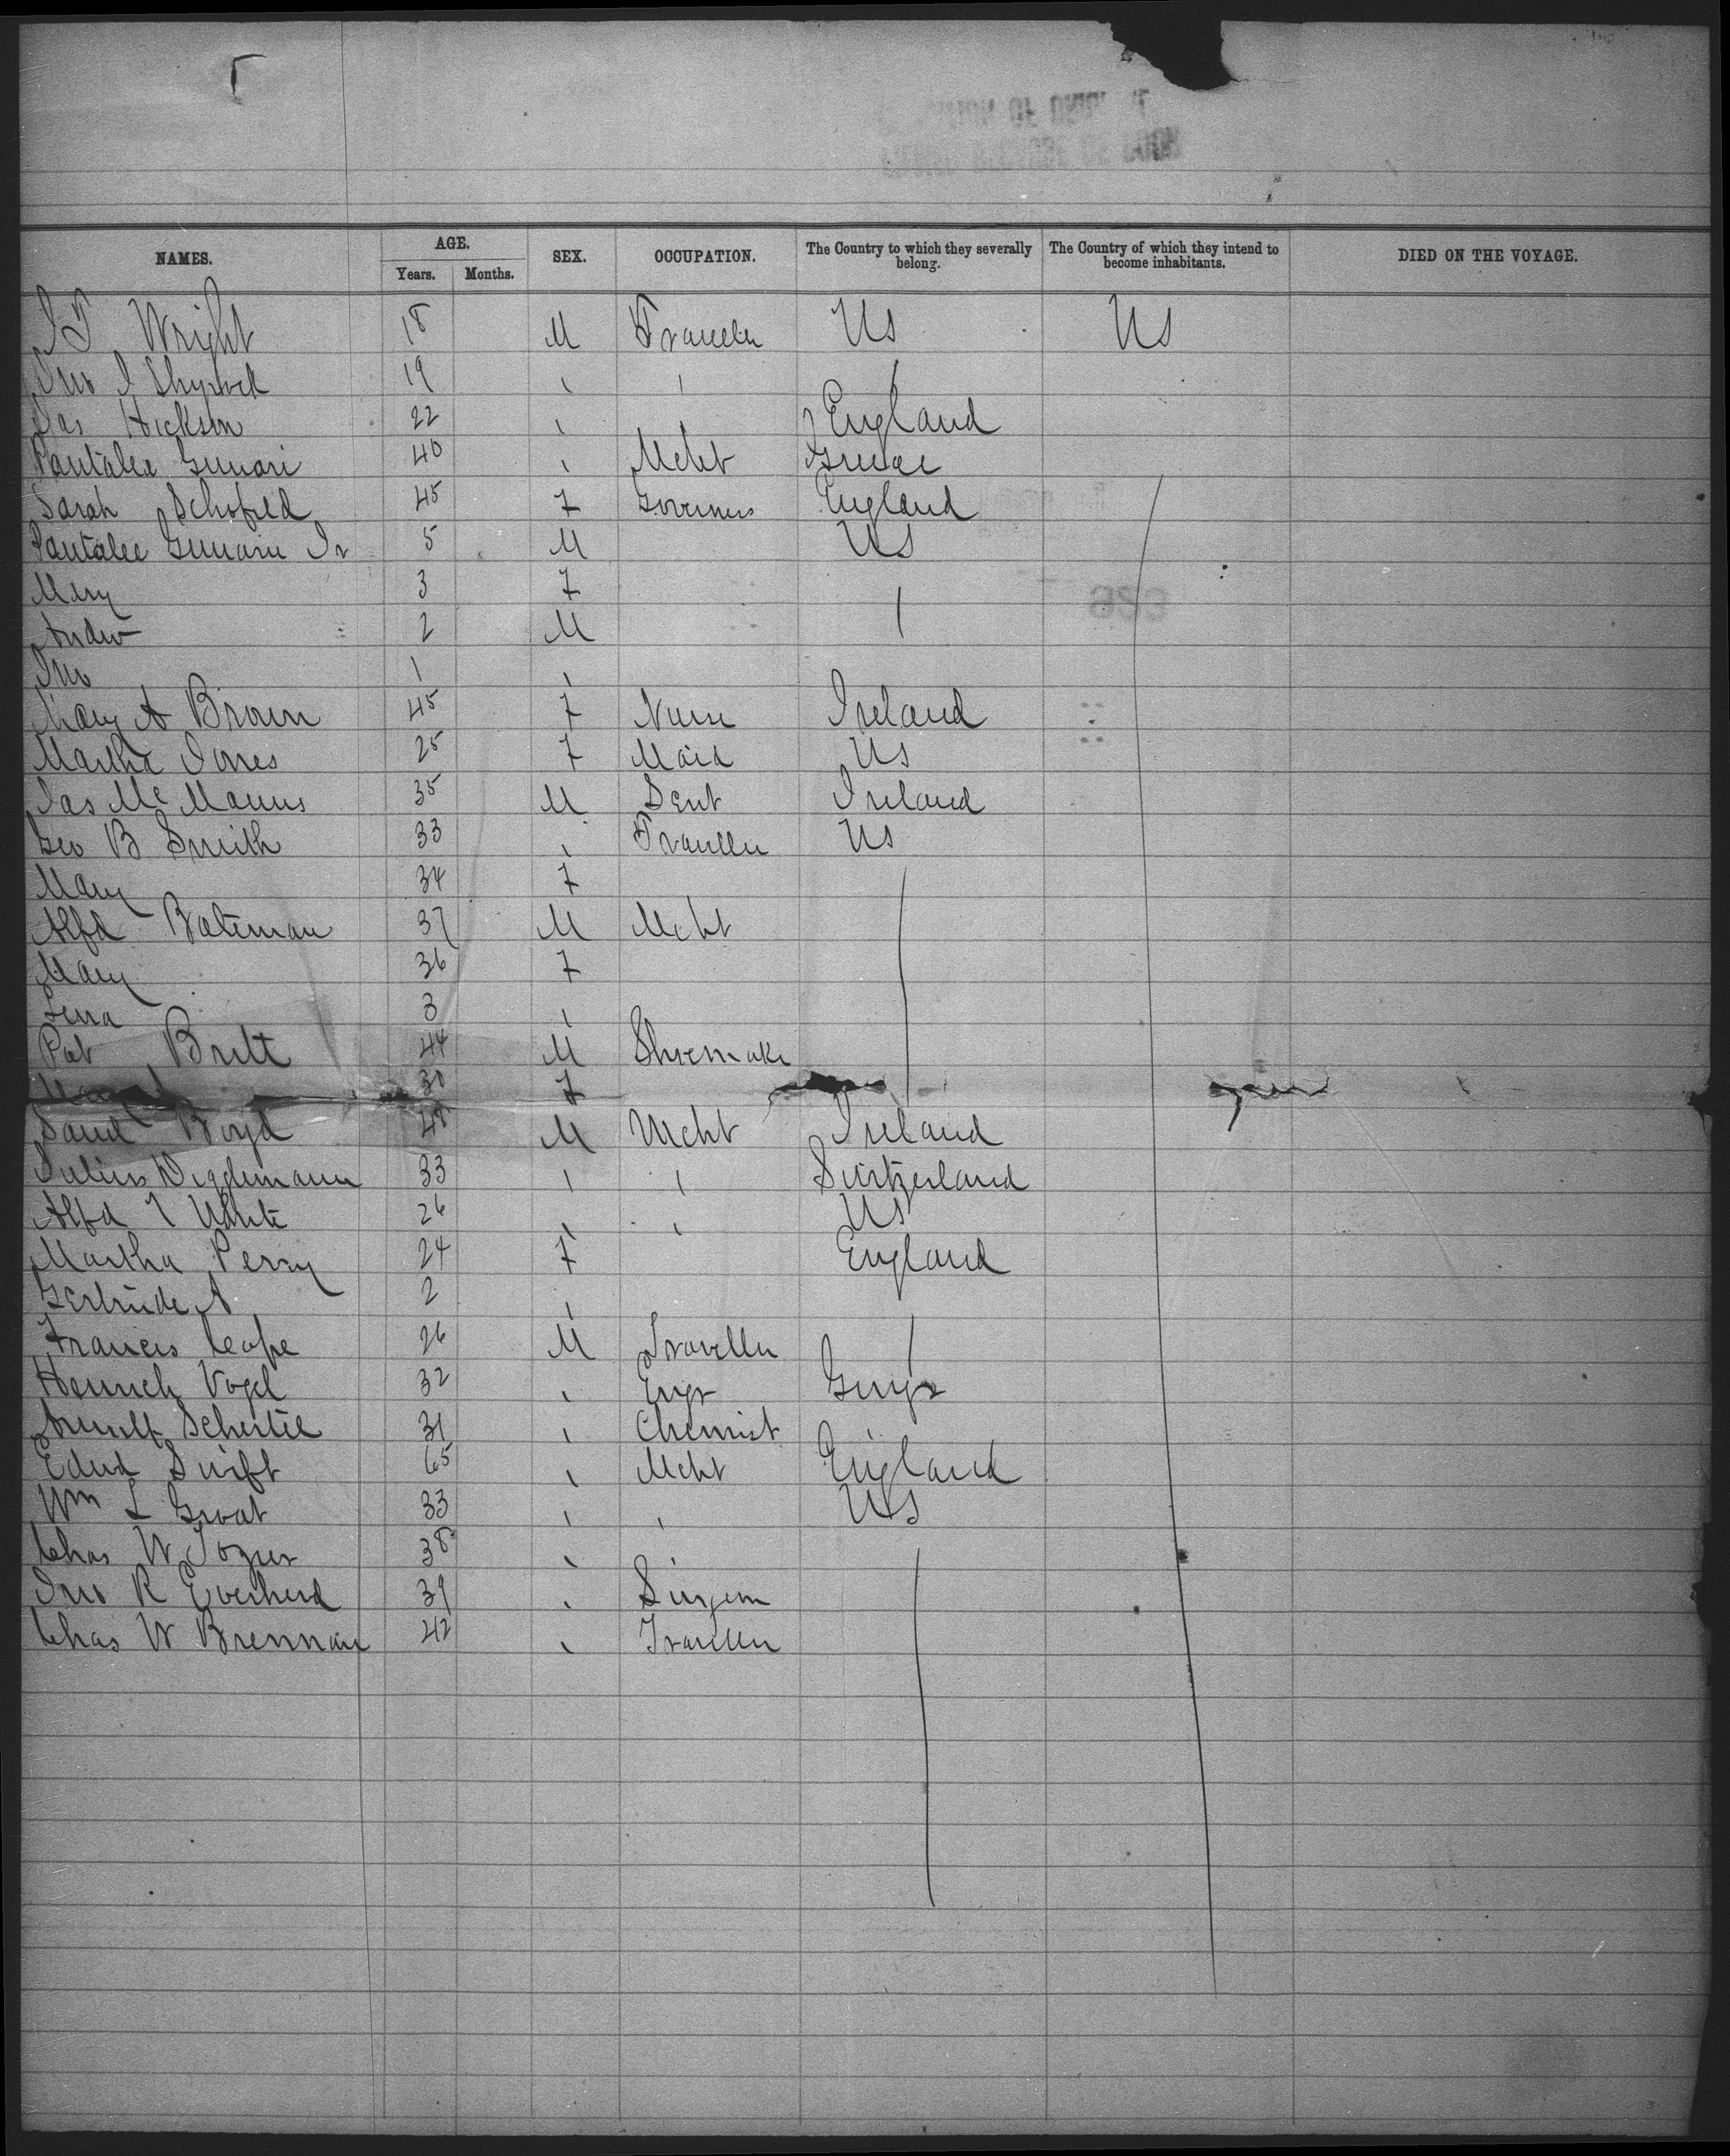 NAMES. AGE. SEX. OCCUPATION. The Country to which they severally belong. The Country of which they intend to become inhabitants. DIED ON THE VOYAGE.
Years. Months.
Wright 18 M Traveller Us Us
Jno J 19
Jas Hickson 22 England
Pantalee 40 Mcht Greece
Sarah Schofield 45 F Governess England
Pantalee Jr 5 M US
Mary 3 F
Andw 2 M
Jno 1
Mary A Brown 45 F Nurse Ireland
Martha Jones 25 F Maid Us
Jas McManus 35 M Sevt Ireland
Geo B Smith 33 Traveller Us
Mary 34 F
Alfd Bateman 37 M Mcht
Mary 36 F
Lena 3
Pat Britt 44 M Shoemaker
30 F
Saml Boyd 48 M Mcht Ireland
Julius 33 Switzerland
Alfd T White 26 Us
Martha Perry 24 F England
Gertrude A 2
Francis Cope 26 M Traveller
Henrich Vogel 32 Engr Gmy
31 Chemist
Edwd Swift 65 Mcht England
Wm L Groat 33 US
Chas W Tozer 38
Jno R Everherd 39 Surgeon
Chas W Brennan 42 Traveller